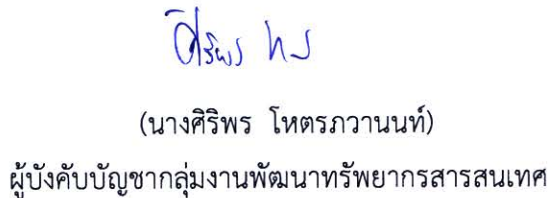 (นางศิริพร โหตรภวานนท์)
ผู้บังคับบัญชากลุ่มงานพัฒนาทรัพยากรสารสนเทศ